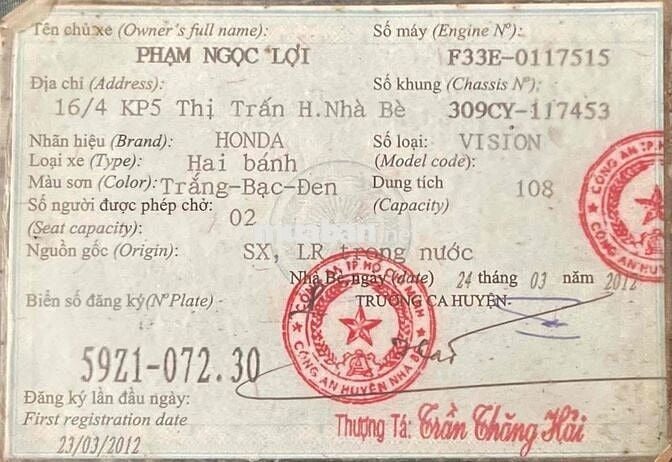 Tên chủ xe (Owner's full name):
PHẠM NGỌC LỢI
Số máy (Engine Nº):
F33E-0117515
Địa chỉ (Address):
16/4 KP5 Thị Trấn H.Nhà Bè
Số khung (Chassis Nº):
309CY-117453
Nhãn hiệu (Brand): HONDA
Số loại: VISION
(Model code):
Loại xe (Type): Hai bánh
Màu sơn (Color): Trắng-Bạc-Đen
Dung tích 108
(Capacity)
Số người được phép chở: 02
(Seat capacity):
Nguồn gốc (Origin): SX, LR trong nước
Nhà Bè, ngày (date) 24 tháng 03 năm 2012
TRƯỞNG CA HUYỆN
Biển số đăng ký(Nº Plate) -
59Z1-072.30
Đăng ký lần đầu ngày:
First registration date
23/03/2012
CÔNG AN TP HỒ CHÍ MINH
CÔNG AN HUYỆN NHÀ BÈ
Thượng Tá: Trần Thăng Hải
CÔNG AN TP.
CÔNG AN HUYỆN
muaban.net